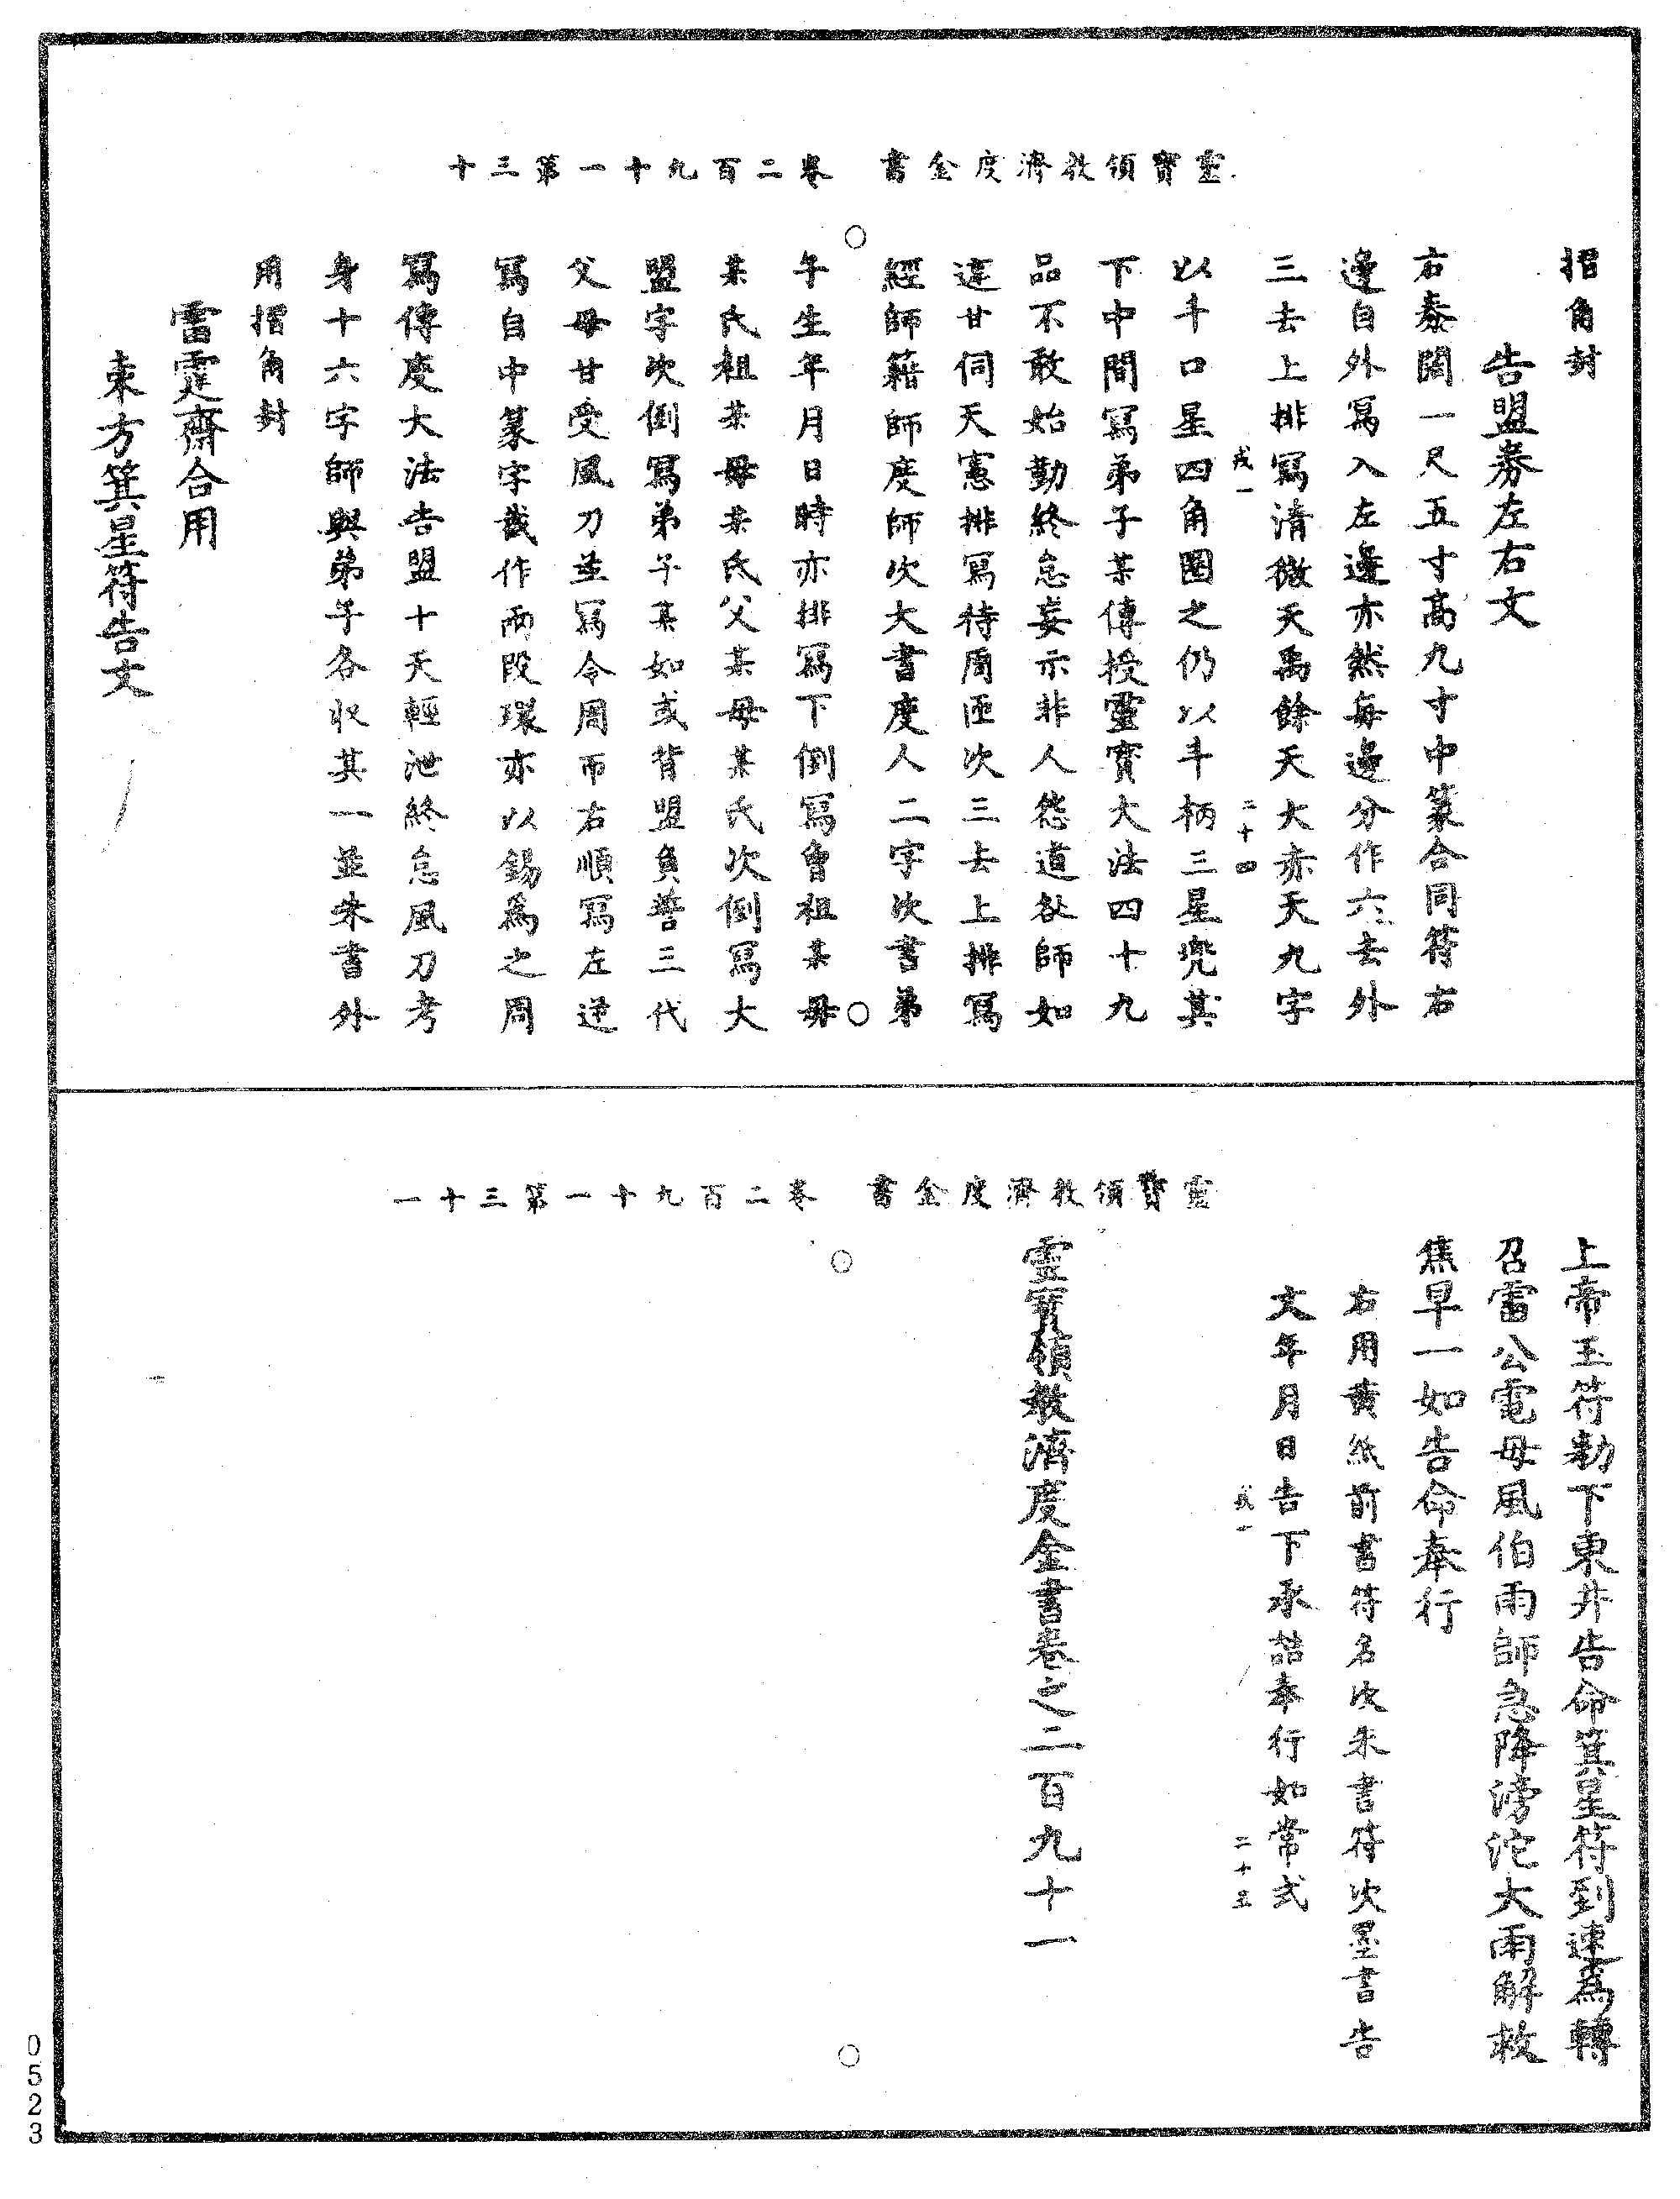 靈寶領教濟度金書　卷二百九十一第三十
摺角封
告盟券左右文
右泰闊一尺五寸高九寸中篆合同符右
邊自外寫入左邊亦然每邊分作六去外
三去上排寫清微天禹餘天大赤天九字
戎一　二十四
以斗口星四角圈之仍以斗柄三星兜其
下中間寫弟子某傳授靈寶大法四十九
品不敢始勤終怠妄示非人怨道咎師如
違甘伺天憲排寫待周匝次三去上排寫
經師籍師度師次大書度人二字次書弟
子生年月日時亦排寫下倒寫曾祖某母
某氏祖某母某氏父某母某氏次倒寫大
盟字次倒寫弟子某如或背盟負誓三代
父母甘受風刀並寫令周帀右順寫左逆
寫自中篆字截作兩段環亦以錫為之周
寫傳度大法告盟十天輕泄終怠風刀考
身十六字師與弟子各收其一並朱書外
用摺角封
雷霆齋合用
東方箕星符告文
靈寶領教濟度金書　卷二百九十一第三十一
上帝玉符勑下東井告命箕星符到速為轉
召雷公電母風伯雨師急降滂沱大雨解救
焦旱一如告命奉行
右用黃紙前書符名次朱書符次墨書告
文年月日告下承誥奉行如常式
戎一　二十五
靈寶領教濟度金書卷之二百九十一
0523